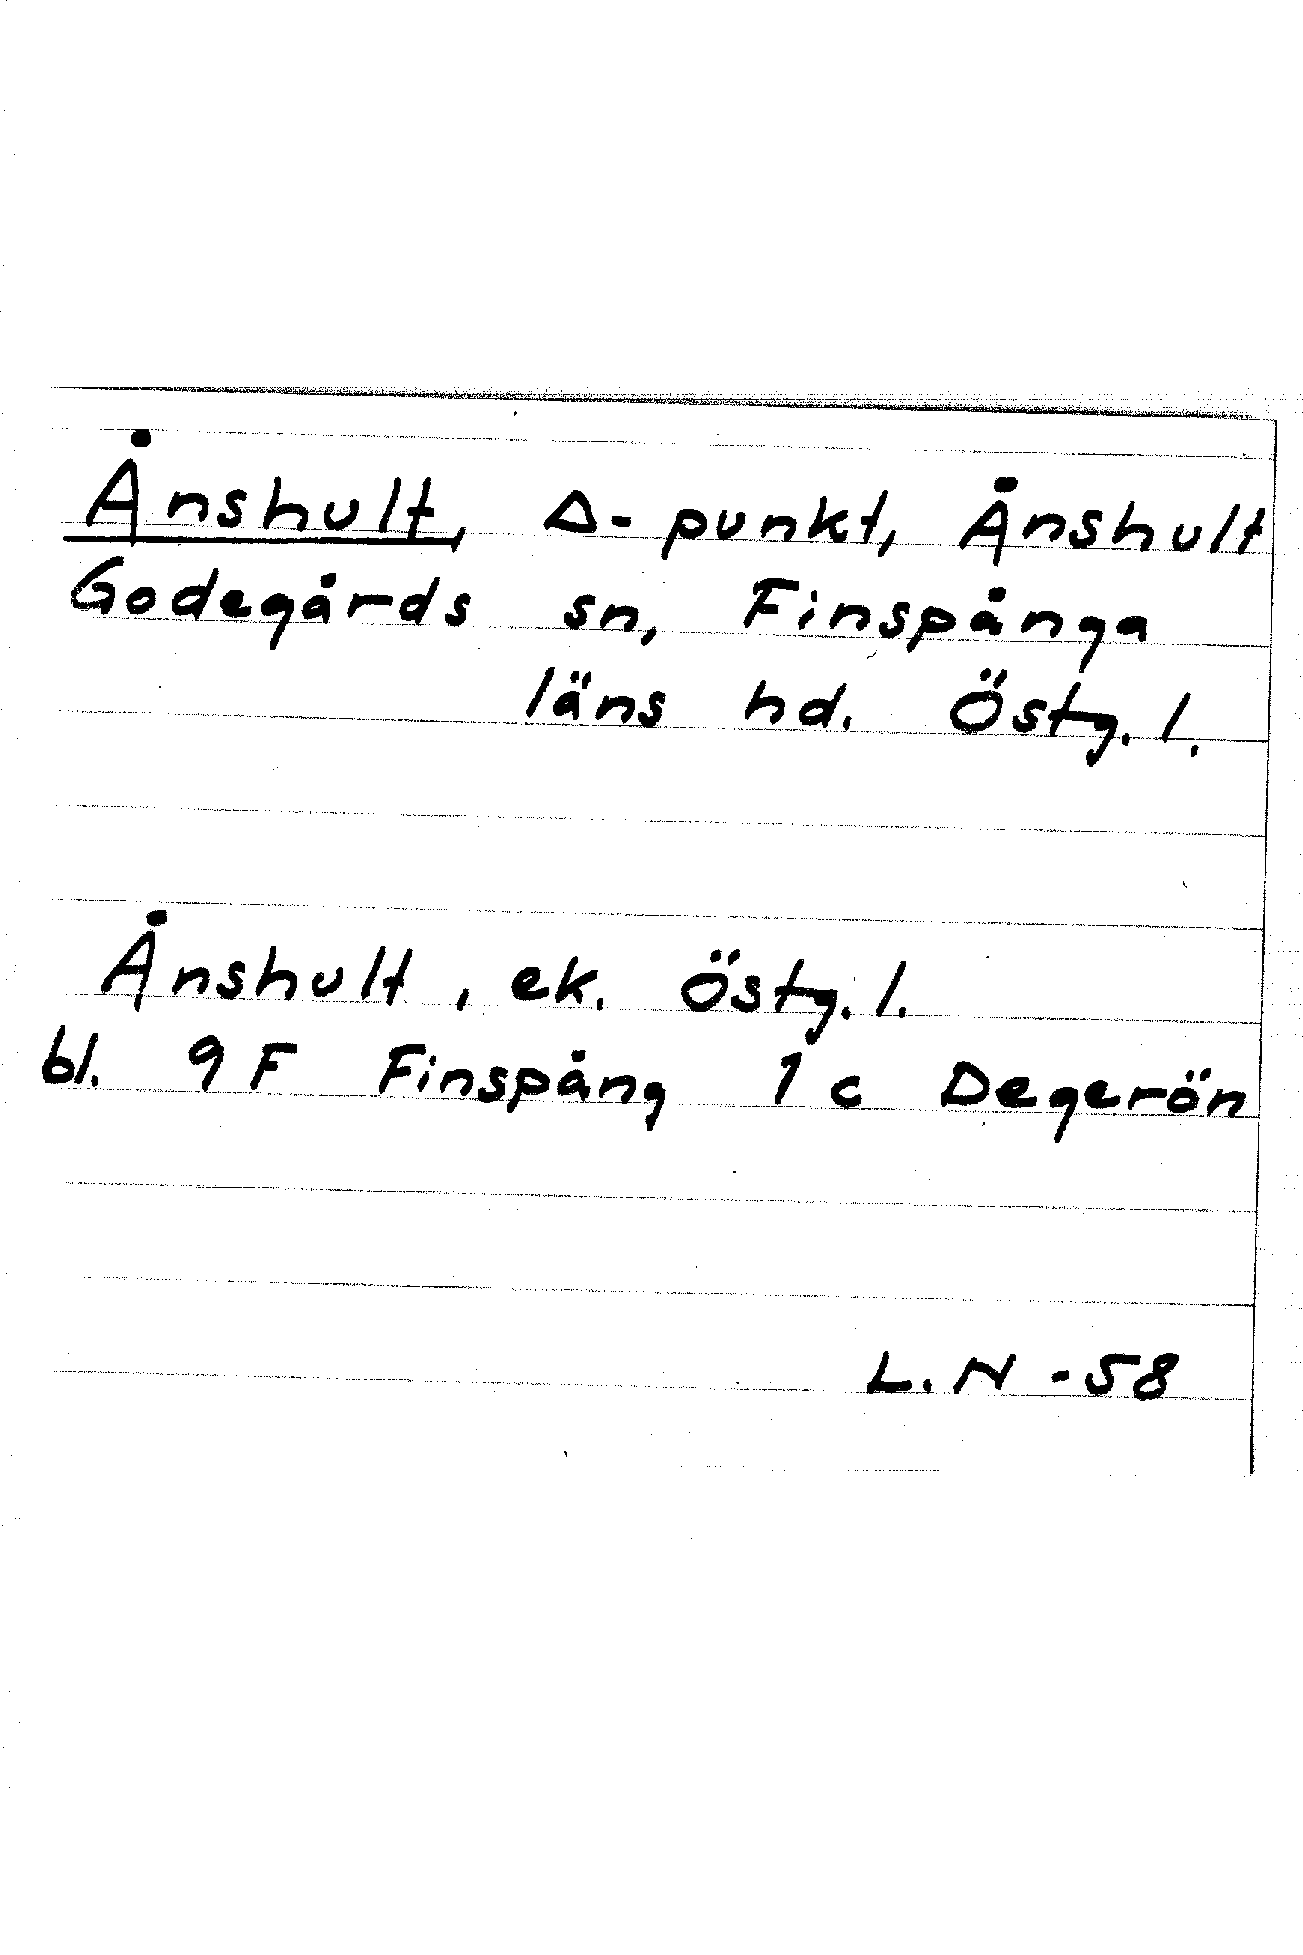 Ånshult, Δ-punkt, Ånshult
Godegårds sn, Finspånga
läns hd. Östg. l.
Ånshult, ek. Östg. l.
bl. 9F Finspång 1c Degerön
L.N -58